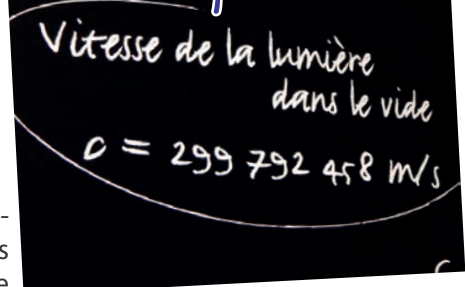 Vitesse de la lumière
dans le vide
c = 299 792 458 m/s